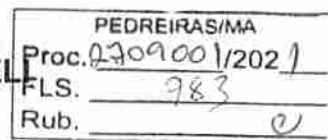 PEDREIRAS/MA
Proc. 2709001/2021
FLS. 983
Rub.